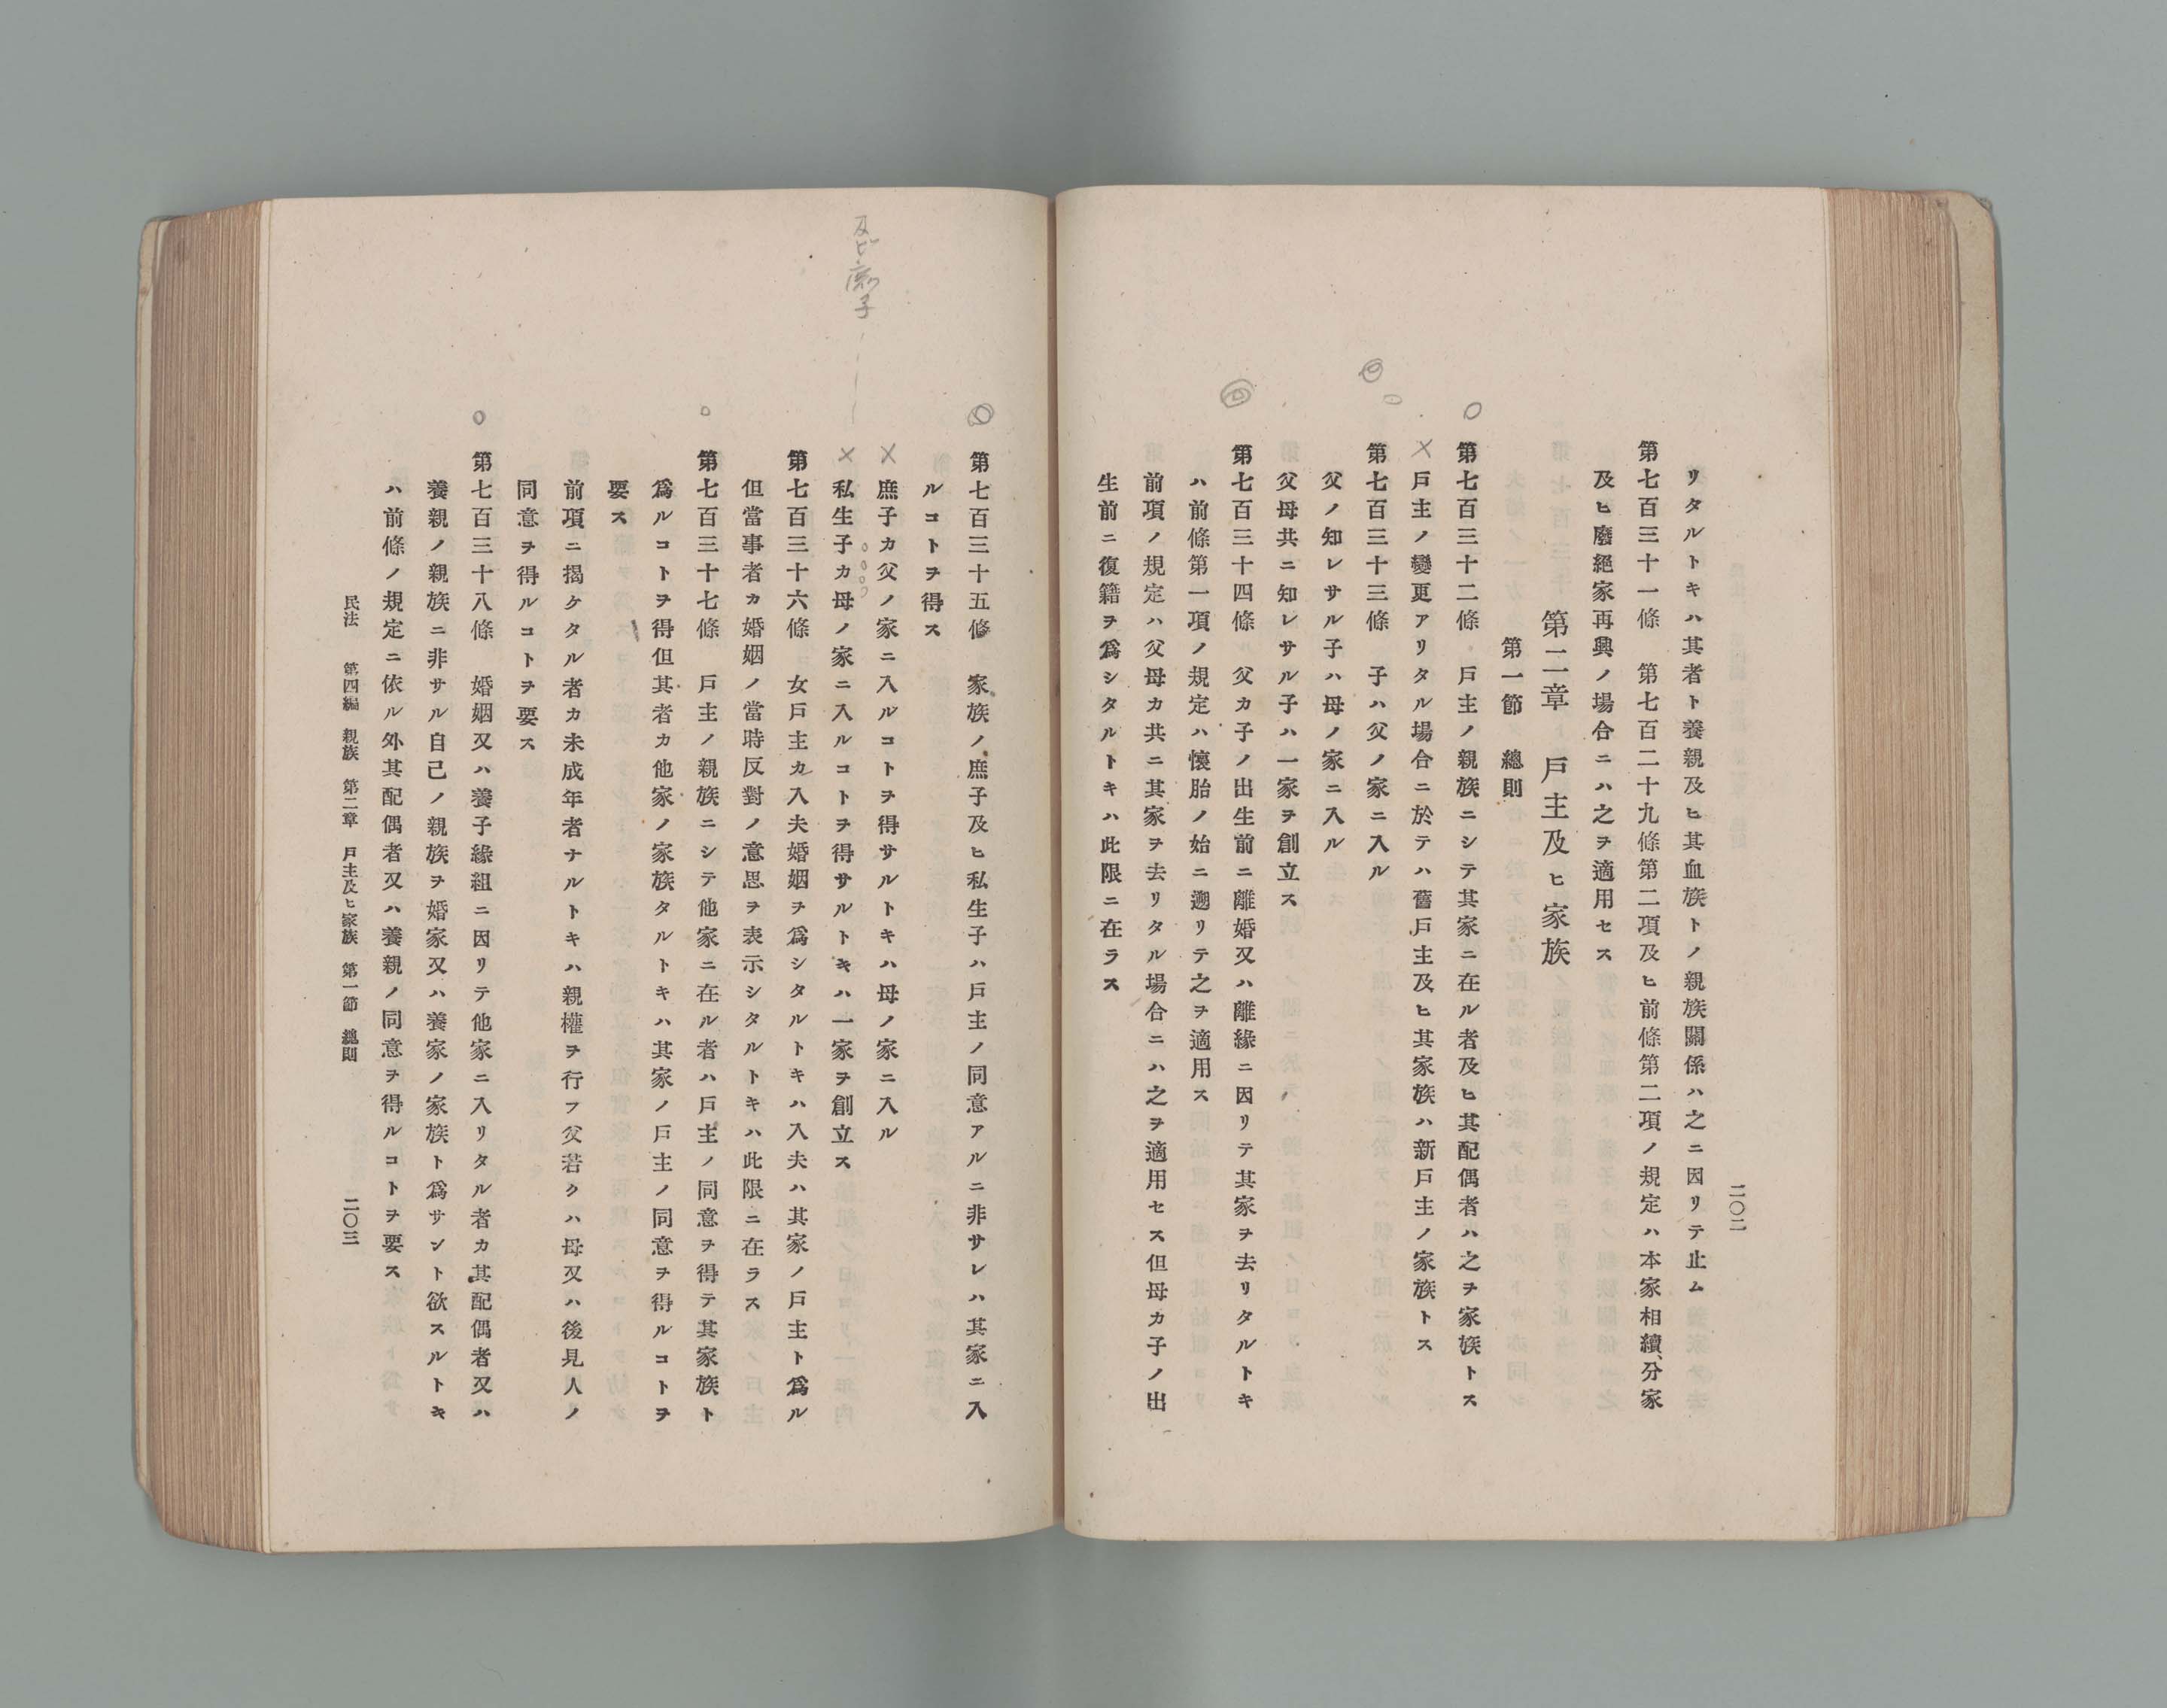 二〇二
リタルトキハ其者ト養親及ヒ其血族トノ親族關係ハ之ニ因リテ止ム
第七百三十一條　第七百二十九條第二項及ヒ前條第二項ノ規定ハ本家相續、分家
及ヒ廢絕家再興ノ場合ニハ之ヲ適用セス
第二章　戶主及ヒ家族
第一節　總則
第七百三十二條　戶主ノ親族ニシテ其家ニ在ル者及ヒ其配偶者ハ之ヲ家族トス
戶主ノ變更アリタル場合ニ於テハ舊戶主及ヒ其家族ハ新戶主ノ家族トス
第七百三十三條　子ハ父ノ家ニ入ル
父ノ知レサル子ハ母ノ家ニ入ル
父母共ニ知レサル子ハ一家ヲ創立ス
第七百三十四條　父カ子ノ出生前ニ離婚又ハ離緣ニ因リテ其家ヲ去リタルトキ
ハ前條第一項ノ規定ハ懷胎ノ始ニ遡リテ之ヲ適用ス
前項ノ規定ハ父母カ共ニ其家ヲ去リタル場合ニハ之ヲ適用セス但母カ子ノ出
生前ニ復籍ヲ爲シタルトキハ此限ニ在ラス
及ビ庶子
第七百三十五條　家族ノ庶子及ヒ私生子ハ戶主ノ同意アルニ非サレハ其家ニ入
ルコトヲ得ス
庶子カ父ノ家ニ入ルコトヲ得サルトキハ母ノ家ニ入ル
私生子カ母ノ家ニ入ルコトヲ得サルトキハ一家ヲ創立ス
第七百三十六條　女戶主カ入夫婚姻ヲ爲シタルトキハ入夫ハ其家ノ戶主ト爲ル
但當事者カ婚姻ノ當時反對ノ意思ヲ表示シタルトキハ此限ニ在ラス
第七百三十七條　戶主ノ親族ニシテ他家ニ在ル者ハ戶主ノ同意ヲ得テ其家族ト
爲ルコトヲ得但其者カ他家ノ家族タルトキハ其家ノ戶主ノ同意ヲ得ルコトヲ
要ス
前項ニ揭ケタル者カ未成年者ナルトキハ親權ヲ行フ父若クハ母又ハ後見人ノ
同意ヲ得ルコトヲ要ス
第七百三十八條　婚姻又ハ養子緣組ニ因リテ他家ニ入リタル者カ其配偶者又ハ
養親ノ親族ニ非サル自己ノ親族ヲ婚家又ハ養家ノ家族ト爲サント欲スルトキ
ハ前條ノ規定ニ依ル外其配偶者又ハ養親ノ同意ヲ得ルコトヲ要ス
民法　第四編　親族　第二章　戶主及ヒ家族　第一節　總則
二〇三